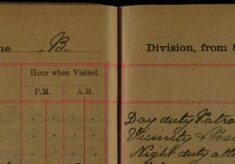 ne B. Division, from 8
Hour when Visited.
P.M. A.M.
Day duty Patro
Vicinity &
Night duty att